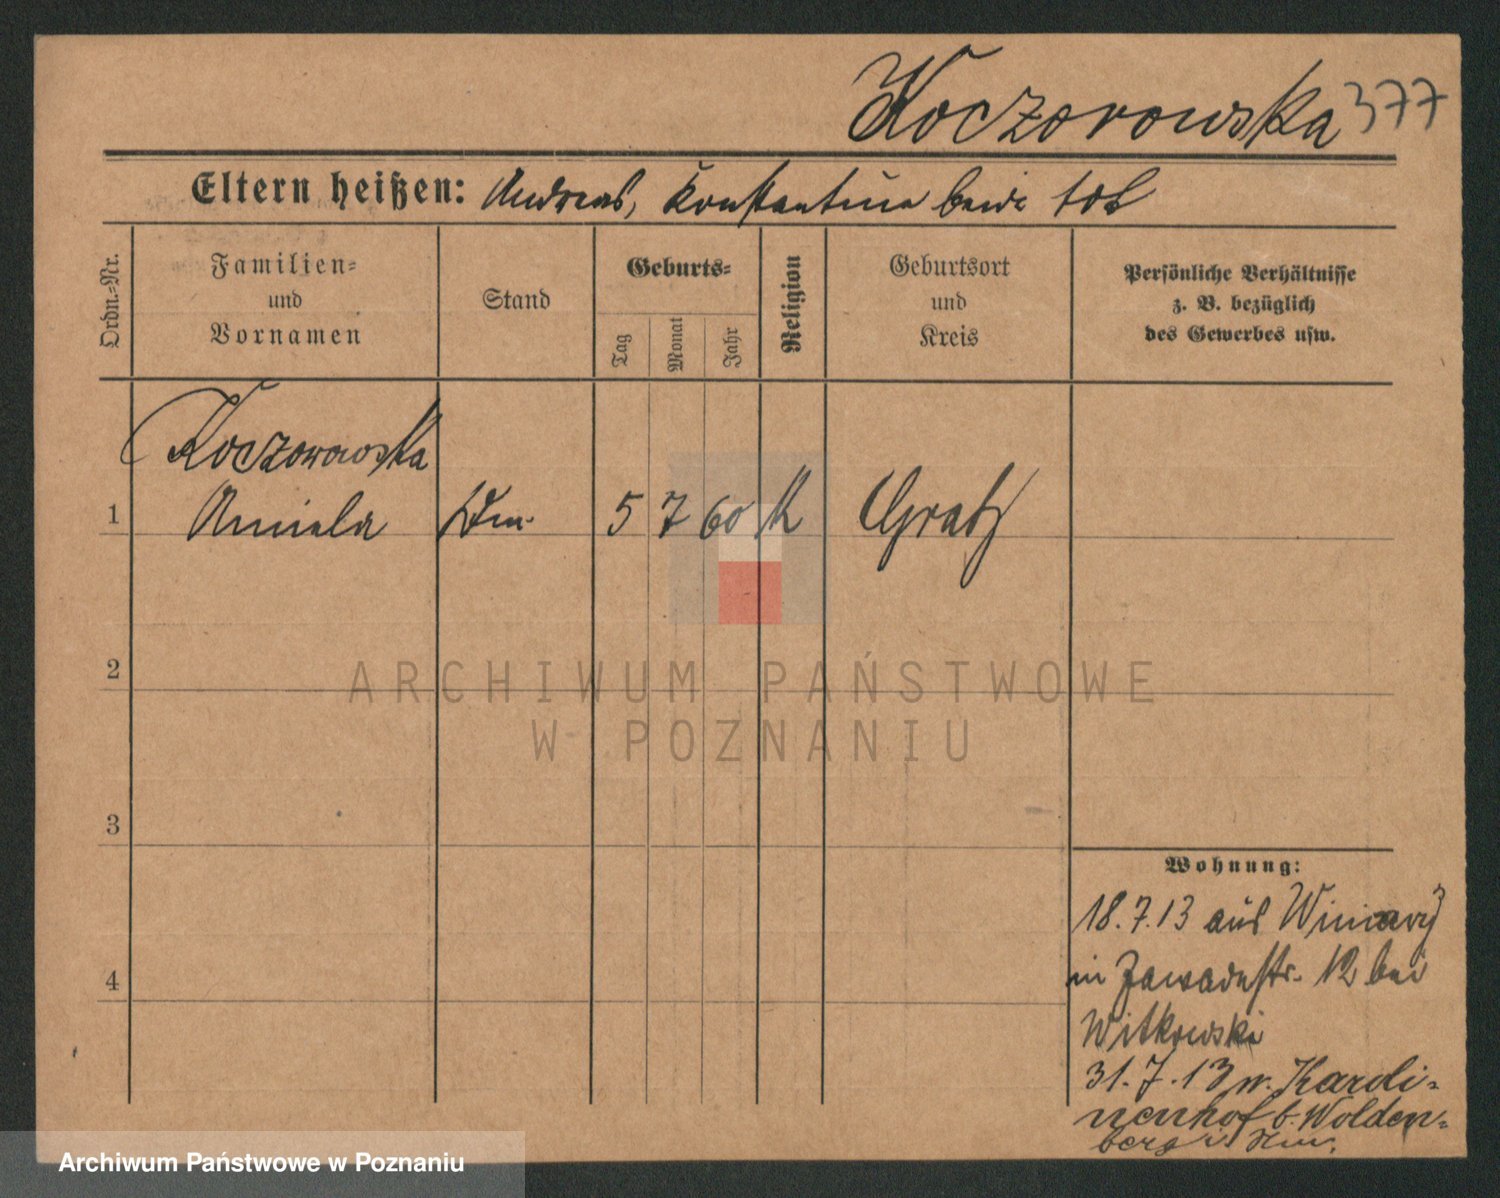 Koczorowska 377
Eltern heißen: Andreas, Konstantina beide tot
Ordn.-Nr.
Familien-
und
Vornamen
Stand
Geburts-
Tag
Monat
Jahr
Religion
Geburtsort
und
Kreis
Persönliche Verhältnisse
z. B. bezüglich
des Gewerbes usw.
Koczorowska
1 Aniela 5 7 60 K Gratz
2
ARCHIWUM PAŃSTWOWE
W POZNANIU
3
Wohnung:
18.7.13 aus Winiary
in Zawadestr. 12 bei
4
Witkowski
31.7.13 n. Karoli-
nenhof b. Wolden-
berg i. Nm.
Archiwum Państwowe w Poznaniu